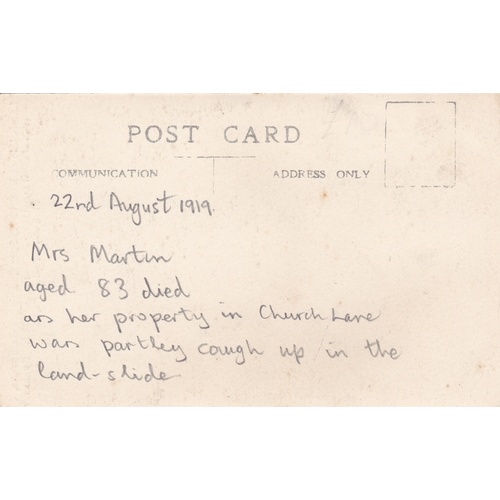 POST CARD
COMMUNICATION ADDRESS ONLY
22nd August 1919.
Mrs Martin
aged 83 died
as her property in Church Lane
was partley caugh up in the
land-slide